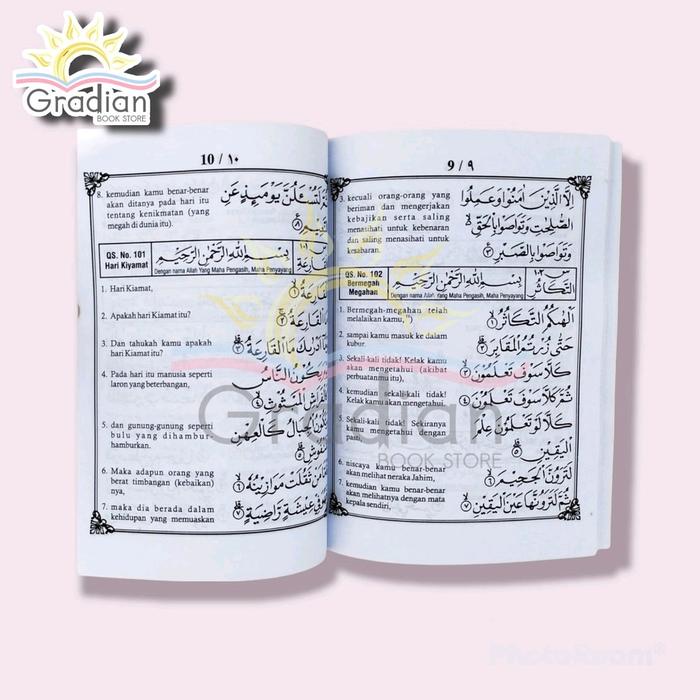 Gradian
BOOK STORE
9 / ٩
3. kecuali orang-orang yang
beriman dan mengerjakan
kebajikan serta saling
menasihati untuk kebenaran
dan saling menasihati untuk
kesabaran.
اِلَّا الَّذِيْنَ اٰمَنُوْا وَعَمِلُوا
الصّٰلِحٰتِ وَتَوَاصَوْا بِالْحَقِّ
وَتَوَاصَوْا بِالصَّبْرِ ۝٣
QS. No. 102
Bermegah
Megahan
بِسْمِ اللّٰهِ الرَّحْمٰنِ الرَّحِيْمِ
Dengan nama Allah Yang Maha Pengasih, Maha Penyayang
س ١٠٢
التَّكَاثُرُ
1. Bermegah-megahan telah
melalaikan kamu, *)
2. sampai kamu masuk ke dalam
kubur.
3. Sekali-kali tidak! Kelak kamu
akan mengetahui (akibat
perbuatanmu itu),
4. kemudian sekali-kali tidak!
Kelak kamu akan mengetahui.
5. Sekali-kali tidak! Sekiranya
kamu mengetahui dengan
6. niscaya kamu benar-benar
akan melihat neraka Jahim,
7. kemudian kamu benar-benar
akan melihatnya dengan mata
kepala sendiri,
اَلْهٰىكُمُ التَّكَاثُرُ ۝١
حَتّٰى زُرْتُمُ الْمَقَابِرَ ۝٢
كَلَّا سَوْفَ تَعْلَمُوْنَ ۝٣
ثُمَّ كَلَّا سَوْفَ تَعْلَمُوْنَ ۝٤
كَلَّا لَوْ تَعْلَمُوْنَ عِلْمَ
الْيَقِيْنِ ۝٥
لَتَرَوُنَّ الْجَحِيْمَ ۝٦
ثُمَّ لَتَرَوُنَّهَا عَيْنَ الْيَقِيْنِ ۝٧
10 / ١٠
8. kemudian kamu benar-benar
akan ditanya pada hari itu
tentang kenikmatan (yang
megah di dunia itu).
لَتُسْـَٔلُنَّ يَوْمَىِٕذٍ عَنِ
QS. No. 101
Hari Kiyamat
بِسْمِ اللّٰهِ الرَّحْمٰنِ الرَّحِيْمِ
Dengan nama Allah Yang Maha Pengasih, Maha Penyayang
س ١٠١
1. Hari Kiamat,
2. Apakah hari Kiamat itu?
3. Dan tahukah kamu apakah
hari Kiamat itu?
4. Pada hari itu manusia seperti
laron yang beterbangan,
5. dan gunung-gunung seperti
bulu yang dihambur-
hamburkan.
6. Maka adapun orang yang
berat timbangan (kebaikan)
nya,
7. maka dia berada dalam
kehidupan yang memuaskan
الْقَارِعَةُ ۝٢
اَدْرٰىكَ مَا الْقَارِعَةُ ۝٣
يَكُوْنُ النَّاسُ
الْمَبْثُوْثِ ۝٤
الْجِبَالُ كَالْعِهْنِ
مَنْ ثَقُلَتْ مَوَازِيْنُهٗ ۝٦
فِيْ عِيْشَةٍ رَّاضِيَةٍ ۝٧
Gradian
BOOK STORE
PhotoRoom